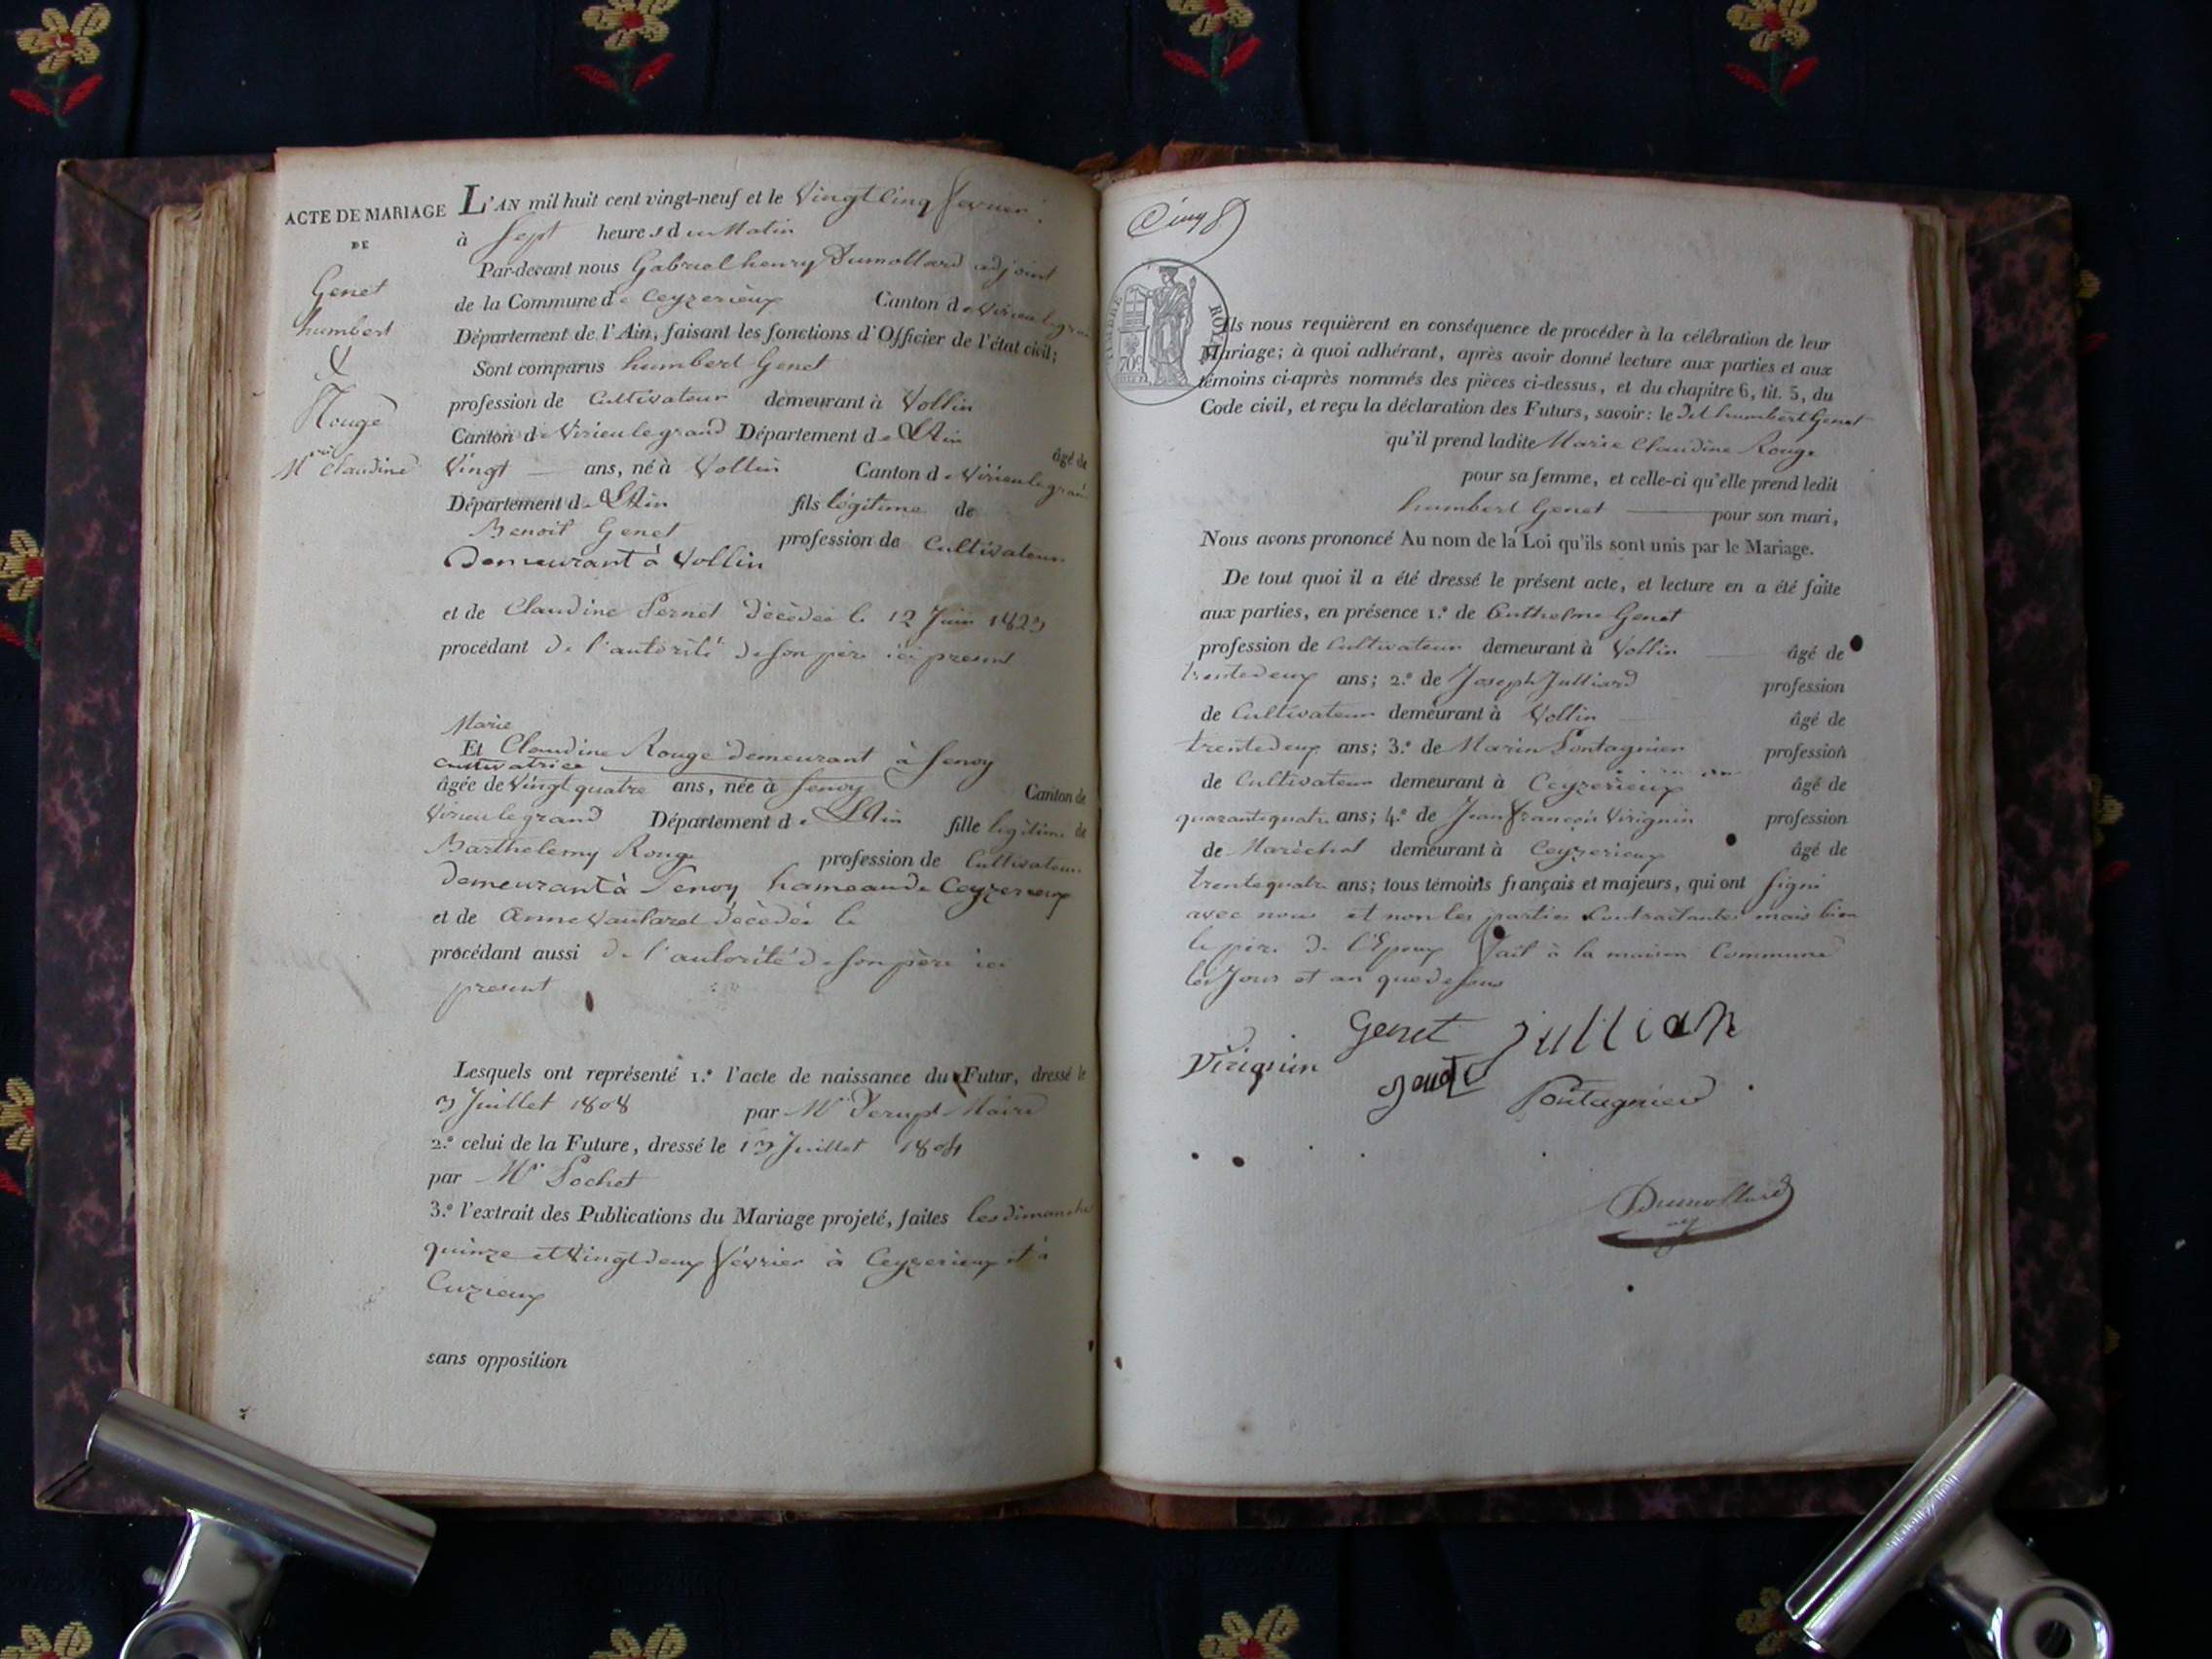 ACTE DE MARIAGE
DE
Genet
humbert
&
Rouge
M.rie Claudine
L'AN mil huit cent vingt-neuf et le Vingt Cinq fevrier
à Sept heures du Matin
Par-devant nous Gabriel henry Dumollard adjoint
de la Commune de Ceyzerieux Canton de Virieu legrand
Département de l'Ain, faisant les fonctions d'Officier de l'état civil;
Sont comparus humbert Genet
profession de Cultivateur demeurant à Vollin
Canton de Virieu legrand Département de L'Ain âgé de
Vingt ans, né à Vollin Canton de Virieu legrand
Département de L'Ain fils légitime de
Benoit Genet profession de Cultivateur
Demeurant à Vollin
et de Claudine Pernet décédée le 12 Juin 1823
procédant de l'autorité de son père ici present
Marie
Et Claudine Rouge demeurant à Senoy
cultivatrice
âgée de Vingt quatre ans, née à Senoy Canton de
Virieu legrand Département de L'Ain fille legitime de
Barthelemy Rouge profession de Cultivateur
demeurant à Senoy hameau de Ceyzerieux
et de Anne décédée le
procédant aussi de l'autorité de son père ici
present
Lesquels ont représenté 1.º l'acte de naissance du Futur, dressé le
3 Juillet 1808 par Mr Maire
2.º celui de la Future, dressé le 13 Juillet 1804
par Mr Pochet
3.º l'extrait des Publications du Mariage projeté, faites les dimanche
quinze et Vingt deux février à Ceyzerieux et à
Cuzieux
sans opposition
TIMBRE ROYAL
70c
Ils nous requièrent en conséquence de procéder à la célébration de leur
Mariage; à quoi adhérant, après avoir donné lecture aux parties et aux
témoins ci-après nommés des pièces ci-dessus, et du chapitre 6, tit. 5, du
Code civil, et reçu la déclaration des Futurs, savoir: le dit humbert Genet
qu'il prend ladite Marie Claudine Rouge
pour sa femme, et celle-ci qu'elle prend ledit
humbert Genet pour son mari,
Nous avons prononcé Au nom de la Loi qu'ils sont unis par le Mariage.
De tout quoi il a été dressé le présent acte, et lecture en a été faite
aux parties, en présence 1.º de Anthelme Genet
profession de Cultivateur demeurant à Vollin âgé de
trente deux ans; 2.º de Joseph Julliard profession
de Cultivateur demeurant à Vollin âgé de
trente deux ans; 3.º de Marin Pontagnier profession
de Cultivateur demeurant à Ceyzerieux âgé de
quarante quatre ans; 4.º de Jean françois Virignin profession
de Maréchal demeurant à Ceyzerieux âgé de
trente quatre ans; tous témoins français et majeurs, qui ont signé
avec nous et non les parties Contractantes mais bien
le père de l'Epoux fait à la maison Commune
les Jour et an que dessus
Genet Jullian
Virignin
Pontagnier
Dumollard